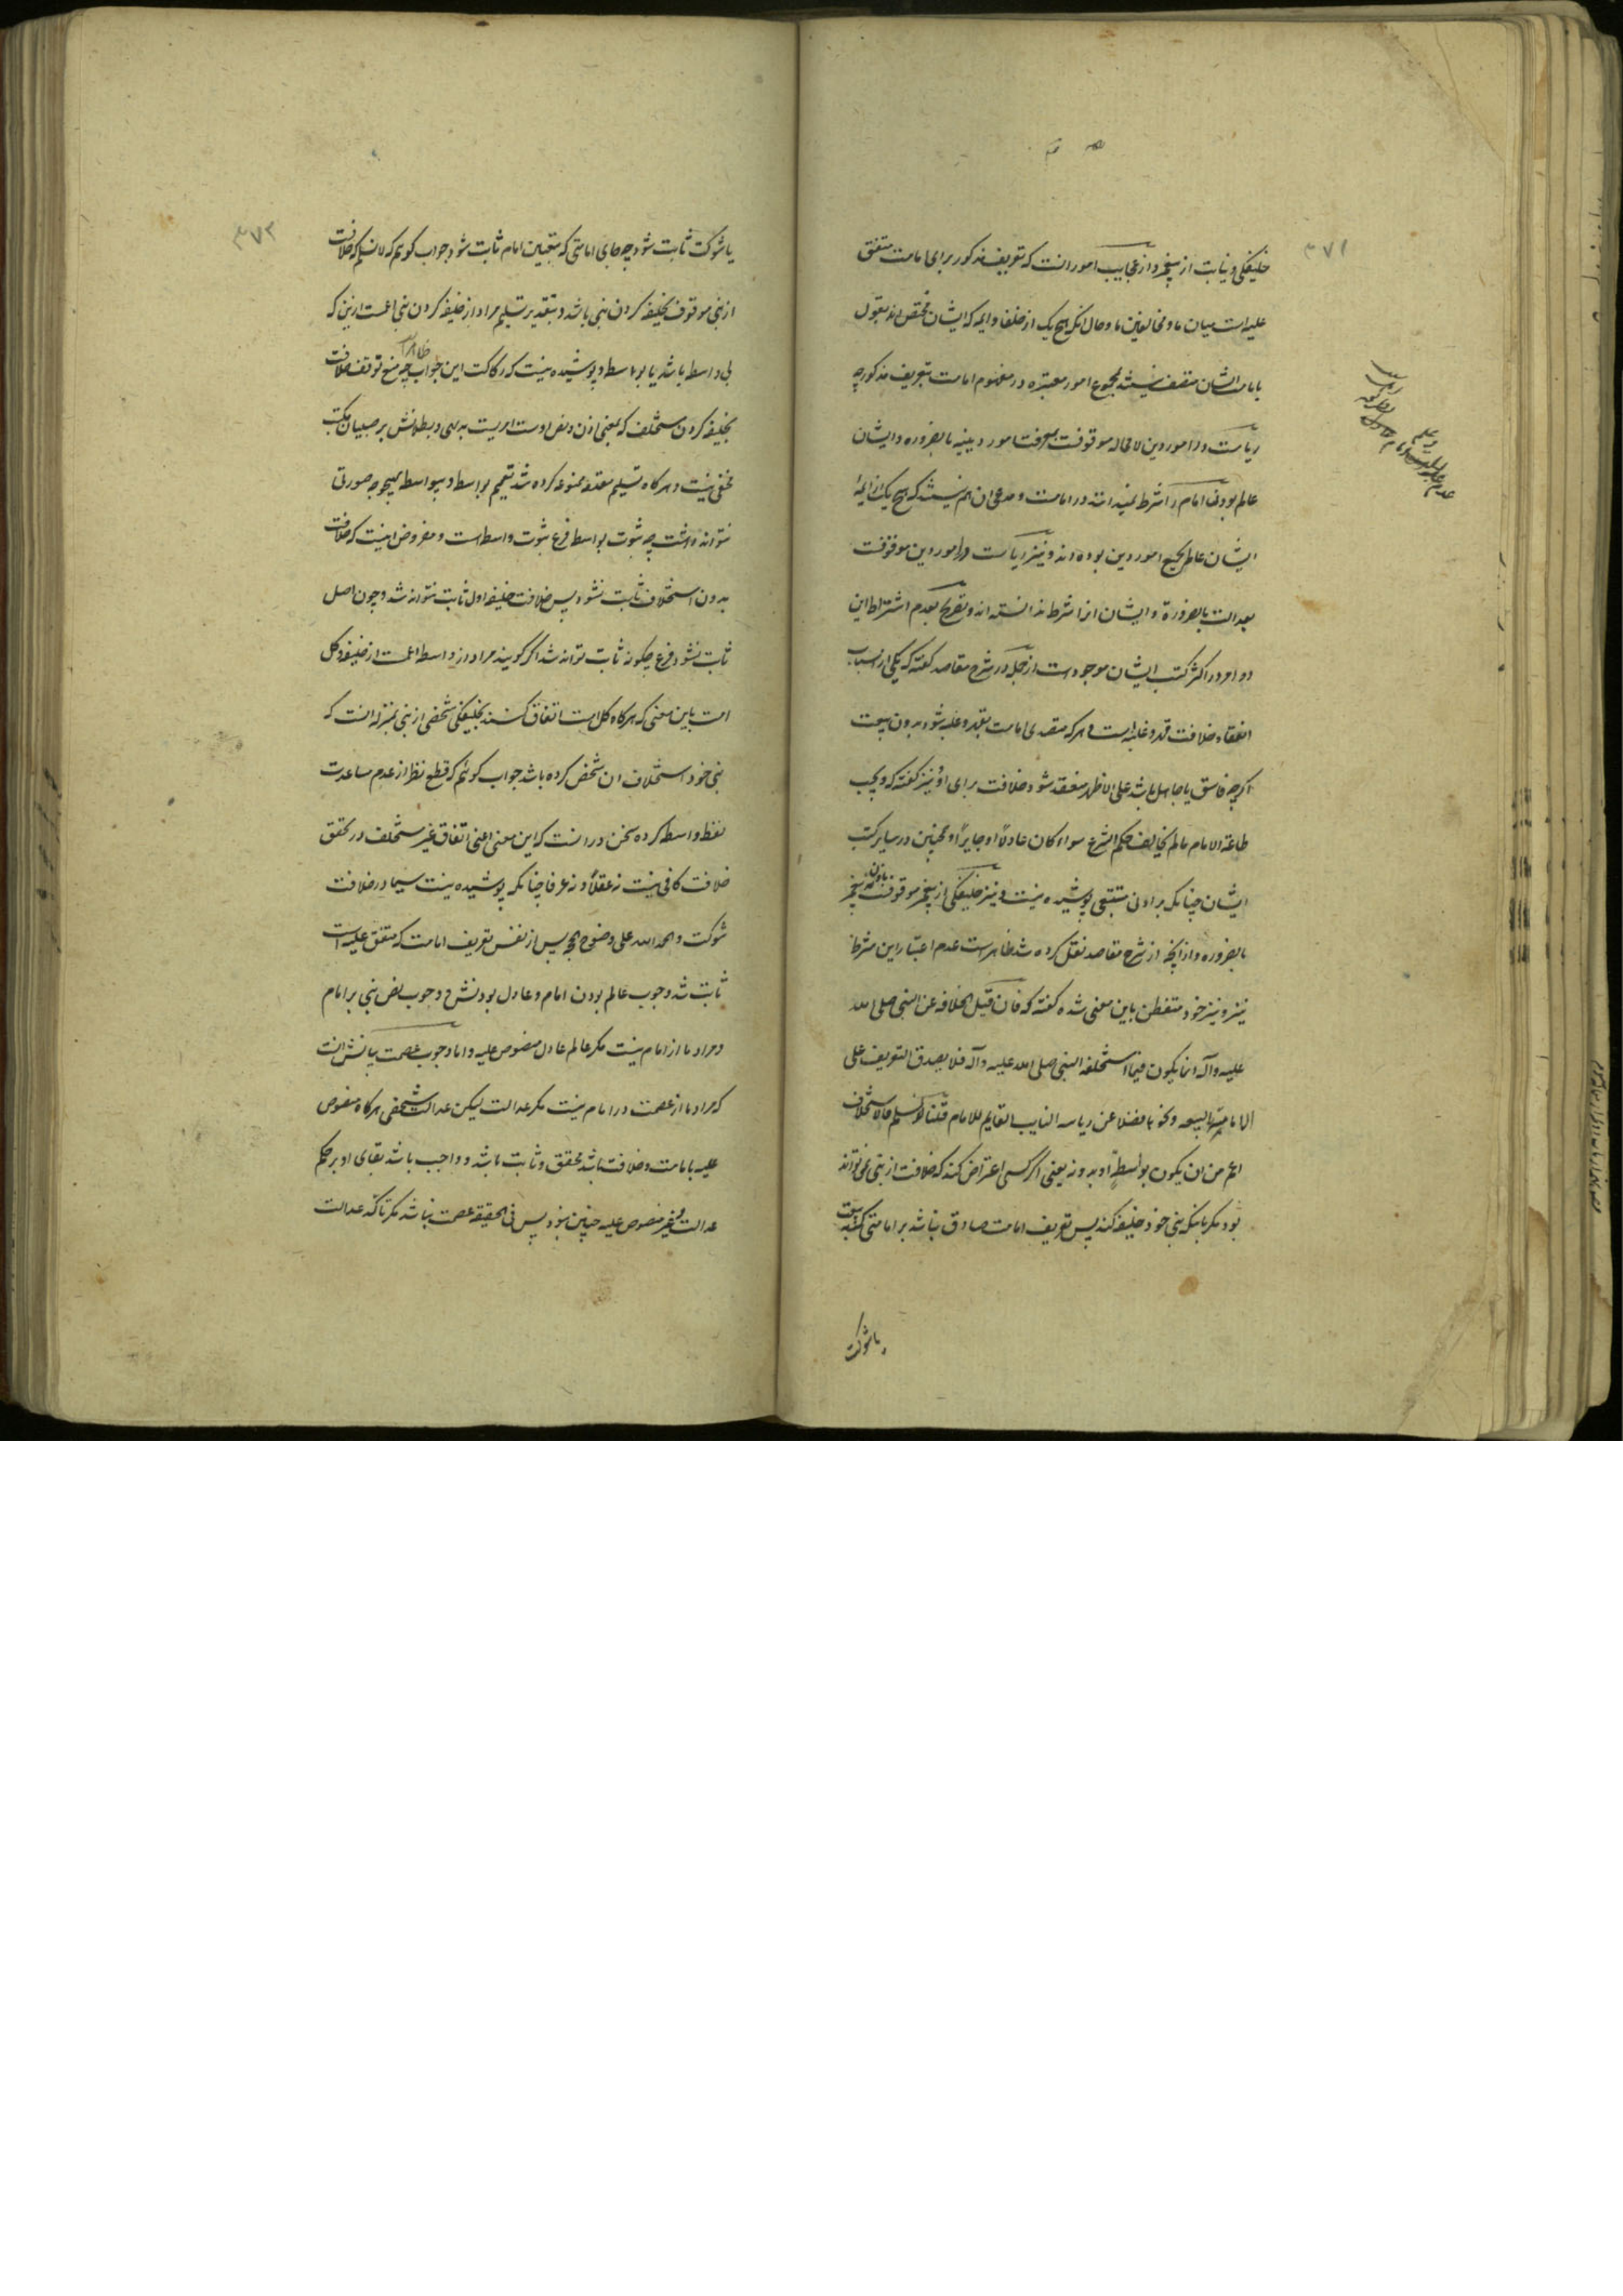 ۳۷۱
خلیفکی و نیابت از پیغمبر و از عجایب امور انست که تعریف مذکور برای امامت متفق
علیه است میان ما و مخالفین ما و حال انکه هیچ یک از خلفا و ایمه که ایشان مختص اند بقول
بامامت ایشان متصف نیستند بمجموع امور معتبره در مفهوم امامت بتعریف مذکور چه
ریاست در امور دین لا محاله موقوفست بمعرفت امور دینیه بالضروره و ایشان
عالم بودن امام را شرط نمیدانند در امامت و مدعی ان هم نیستند که هیچ یک از ایمهٔ
ایشان عالم بجمیع امور دین بوده اند و نیز ریاست در امور دین موقوفست
بعدالت بالضرورة و ایشان انرا شرط ندانسته اند و تصریح بعدم اشتراط این
دو امر در اکثر کتب ایشان موجود است از جمله در شرح مقاصد کفته که یکی از اسباب
انعقاد خلافت قهر و غلبه است و هر که متصدی امامت بقهر و غلبه شود بدون بیعت
اکرچه فاسق یا جاهل باشد علی الاظهر منعقد شود خلافت برای او و نیز کفته که و یجب
طاعة الامام مالم یخالف حکم الشرع سواء کان عادلاً او جایراً و همچنین در سایر کتب
ایشان چنانکه بر ادنی متتبعی پوشیده نیست و نیز خلیفکی از پیغمبر موقوفست باذن پیغمبر
بالضروره و از انچه از شرح مقاصد نقل کرده شد ظاهر است عدم اعتبار این شرط
نیز و نیز خود متفطن باین معنی شده کفته که فان قیل الخلافه عن النبی صلی الله
علیه و آله انما یکون فیما استخلفه النبی صلی الله علیه و آله فلا یصدق التعریف علی
الامامة بالبیعه و نحوها فضلا عن ریاسه النایب القایم للامام قلنا لو سلم فالاستخلاف
اعم من ان یکون بواسطةٍ او بدونه یعنی اکر کسی اعتراض کند که خلافت از نبی نمی تواند
بود مکر بانکه نبی خود خلیفه کند پس تعریف امامت صادق نباشد بر امامتی که به بیعت
یا شوکت
۳۷۲
یا شوکت ثابت شود چه جای امامتی که بتعیین امام ثابت شود جواب کویم که لا نسلم که خلافت
از نبی موقوف بخلیفه کردن نبی باشد و بتقدیر تسلیم مراد از خلیفه کردن نبی اعمست ازین که
بی واسطه باشد یا بواسطه و پوشیده نیست که رکاکت این جواب ظاهر است چه منع توقف خلافت
بخلیفه کردن مستخلف که بمعنی اذن و نص اوست امریست بدیهی و بطلانش بر صبیان مکتب
مخفی نیست و هرکاه تسلیم مقدمه ممنوعه کرده شد تعمیم بواسطه و بیواسطه بهیچوجه صورتی
نتواند داشت چه ثبوت بواسطه فرع ثبوت واسطه است و مفروض اینست که خلافت
بدون استخلاف ثابت نشود پس خلافت خلیفه اول ثابت نتواند شد و چون اصل
ثابت نشود فرع چکونه ثابت تواند شد اکر کویند مراد از واسطه اعمست از خلیفه و کل
امت باین معنی که هرکاه کل امت اتفاق کنند بخلیفکی شخصی از نبی بمنزله انست که
نبی خود استخلاف ان شخص کرده باشد جواب کوئیم که قطع نظر از عدم مساعدت
لفظ واسطه کرده سخن در انست که این معنی اعنی اتفاق غیر مستخلف در تحقق
خلافت کافی نیست نه عقلاً و نه عرفا چنانکه پوشیده نیست سیما در خلافت
شوکت و الحمد الله علی وضوح الحجه پس از نفس تعریف امامت که متفق علیه است
ثابت شد وجوب عالم بودن امام و عادل بودنش و وجوب نص نبی بر امام
و مراد ما از امام نیست مکر عالم عادل منصوص علیه و اما وجوب عصمت بیانش انست
که مراد ما از عصمت در امام نیست مکر عدالت لیکن عدالت شخصی هرکاه منصوص
علیه بامامت و خلافت باشد محقق و ثابت باشد و واجب باشد بقای او بر حکم
عدالت و غیر منصوص علیه چنین نبود پس فی الحقیقه عصمت نباشد مکر تاکد عدالت